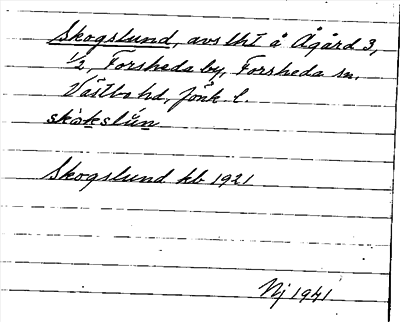 Skogslund, avs lht å Ågård 3,
1/2, Forsheda by, Forsheda sn,
Västbo hd, Jönk. l.
skòkslún
Skogslund kb 1921
Nj 1941